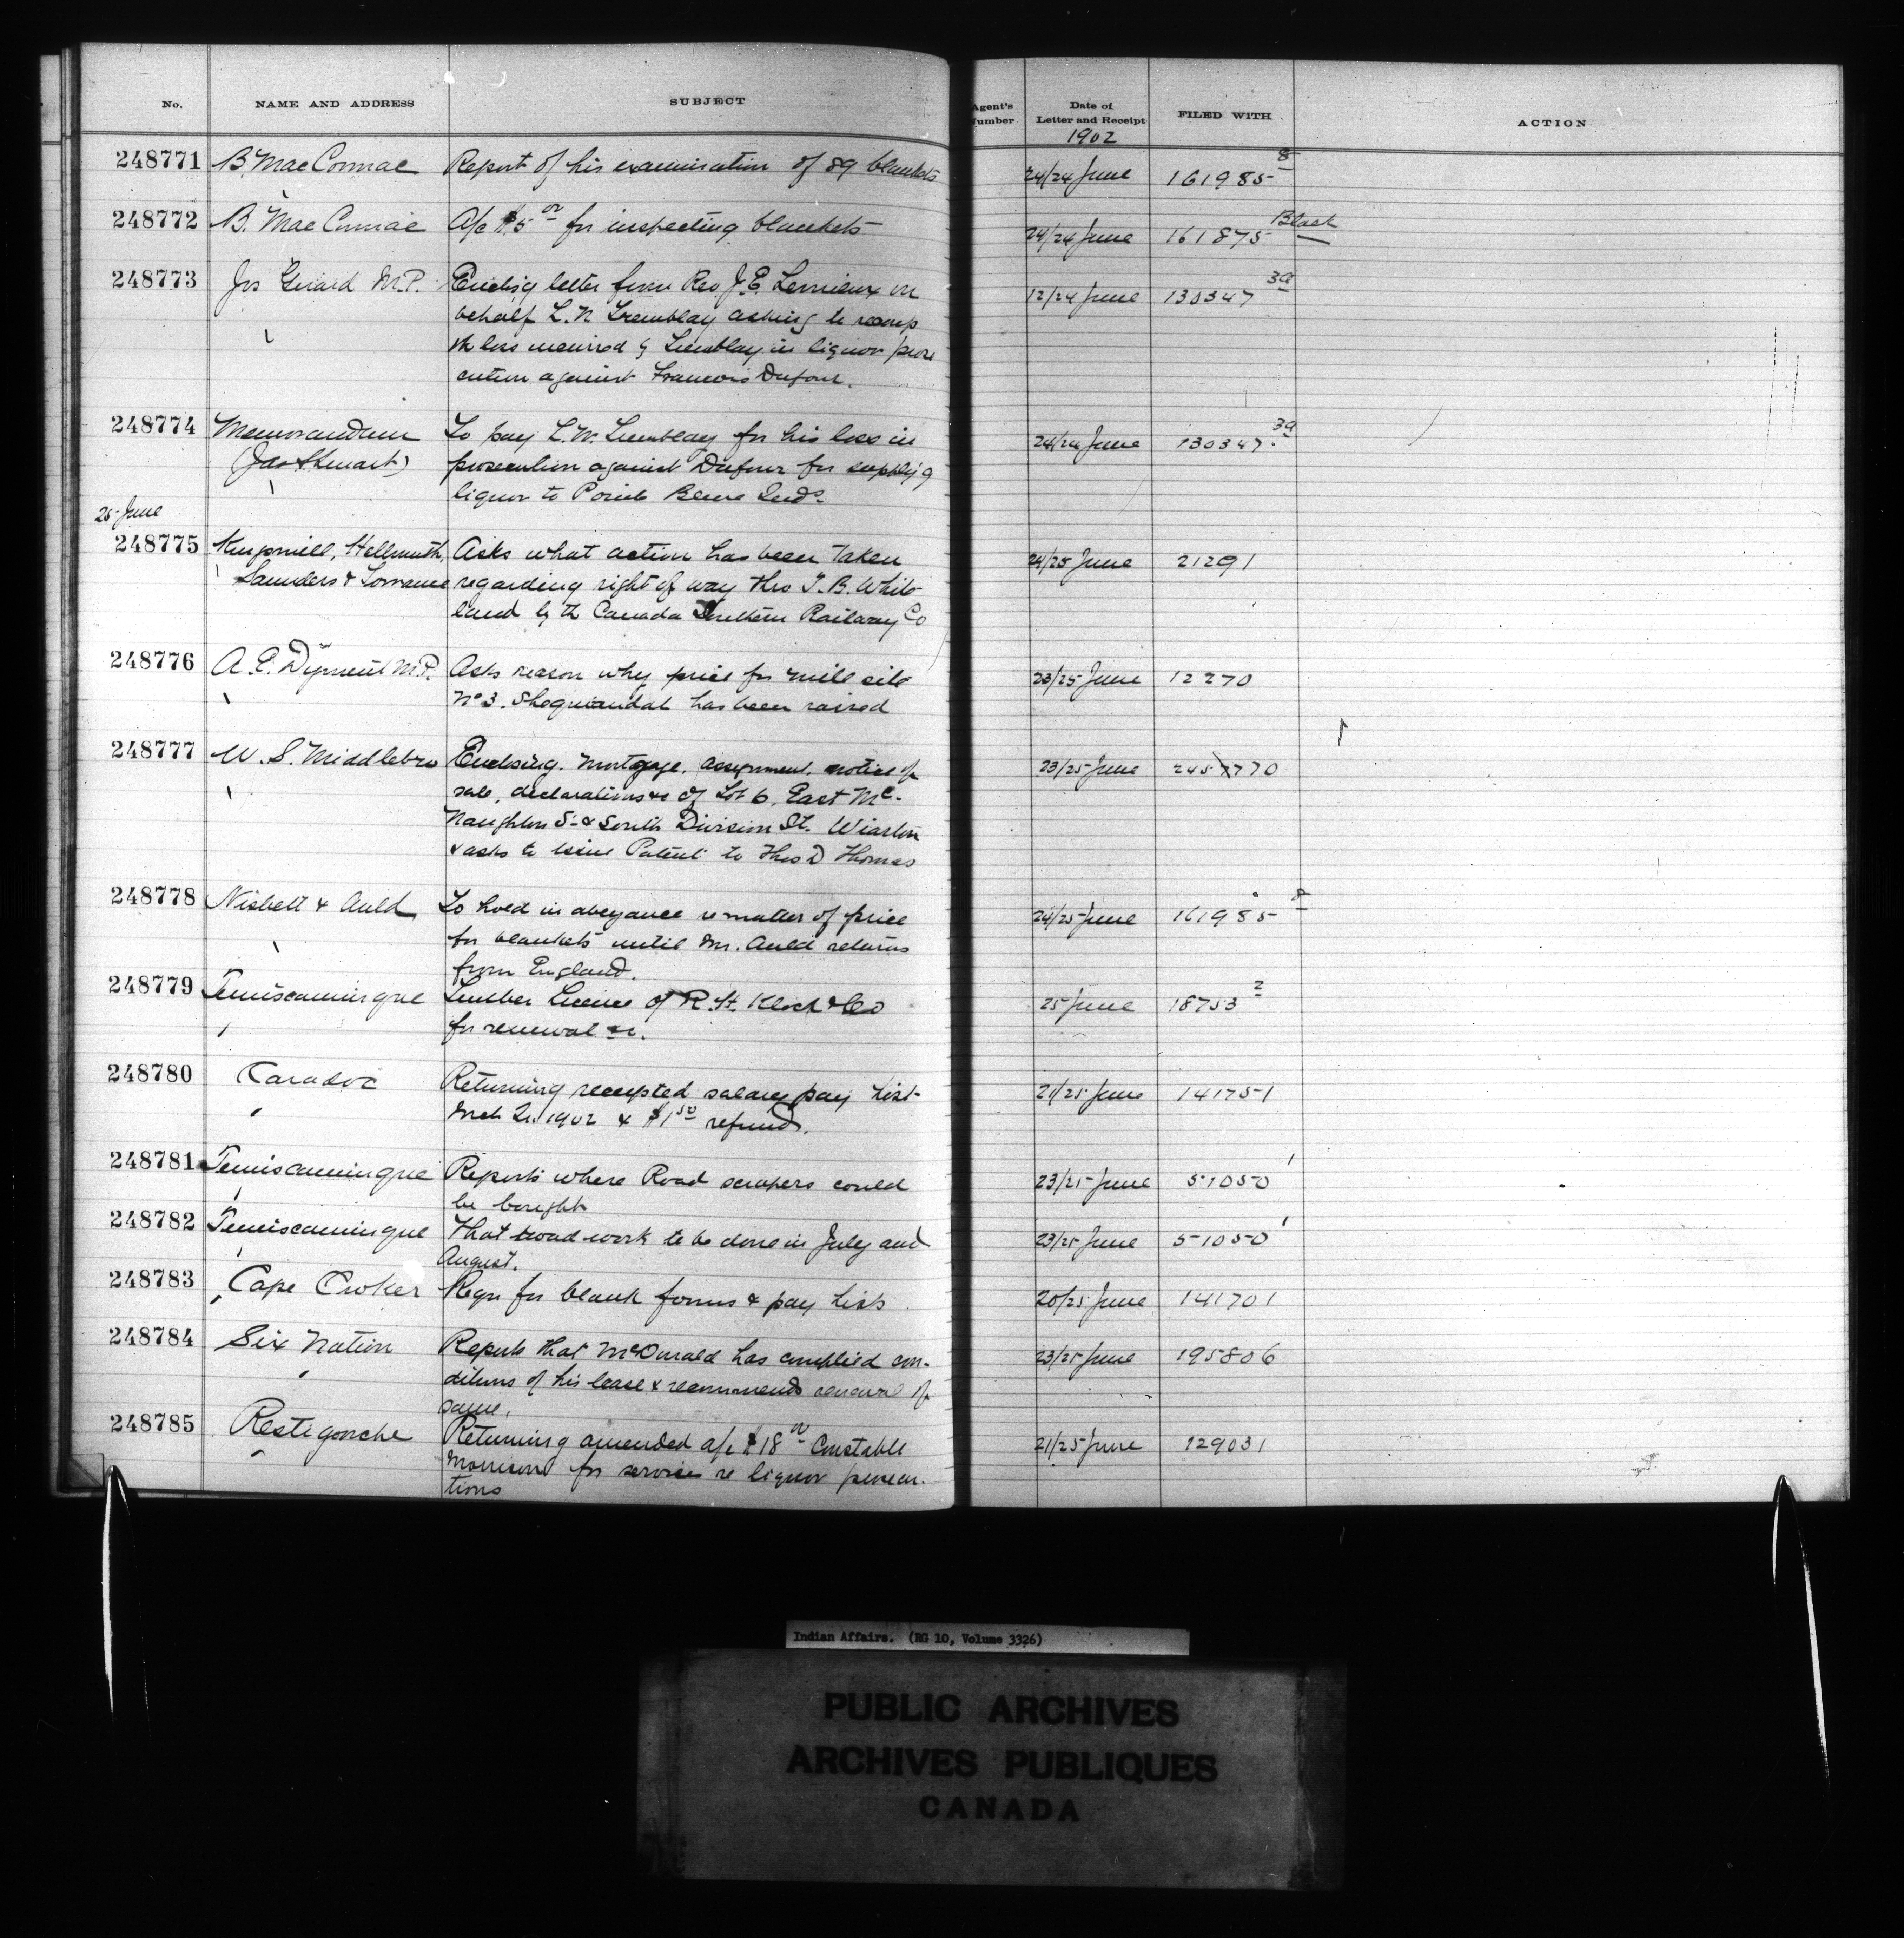 No. NAME AND ADDRESS SUBJECT Agent's Number Date of Letter and Receipt FILED WITH ACTION
1902
248771 B. MacCormac Report of his examination of 89 blankets 24/24 June 161985 8
248772 B. MacCormac A/c $5 00 for inspecting blankets 24/24 June 161875 Black
248773 Jos Girard M.P. Enclos'g letter from Rev J.E. Lemieux on 12/24 June 130347 3a
behalf L.N. Tremblay asking to recoup
the loss incurred by Tremblay in liquor prose
cution against Francois Dufour.
248774 Memorandum To pay L.N. Tremblay for his loss in 24/24 June 130347 3a
(Jas Stewart) prosecution against Dufour for supply'g
liquor to Pointe Bleue Inds.
25 June
248775 Kingsmill, Hellmuth, Asks what action has been taken 24/25 June 21291
Saunders & Torrance regarding right of way thro J.B. White
land by th Canada Southern Railway Co
248776 A.E. Dyment M.P. Asks reason why price for mill site 23/25 June 12270
No 3. Sheguiandah has been raised
248777 W.S. Middlebro Enclosing. Mortgage, assignment, notice of 23/25 June 2457770
sale, declarations &c of Lot 6, East Mc-
Naughton St & South Division St. Wiarton
& asks to issue Patent to Thos D Thomas
248778 Nisbett & Auld To hold in abeyance re matter of price 24/25 June 161985 8
for blankets until Mr. Auld returns
from England.
248779 Temiscamingue Timber License of R.H. Klock & Co 25 June 18753 2
for renewal &c.
248780 Caradoc Returning receipted salary pay list 21/25 June 141751
Mch Qr. 1902 & $1 50 refund.
248781 Temiscamingue Reports where Road scrapers could 23/25 June 51050 1
be bought
248782 Temiscamingue That road work to be done in July and 23/25 June 51050 1
August.
248783 Cape Croker Reqn for blank forms & pay lists 20/25 June 141701
248784 Six Nation Reports that McDonald has complied con- 23/25 June 195806
ditions of his lease & recommends renewal of
same.
248785 Restigouche Returning amended a/c $18 00 Constable 21/25 June 129031
Morrison for services re liquor prosecu-
tions
Indian Affairs. (RG 10, Volume 3326)
PUBLIC ARCHIVES
ARCHIVES PUBLIQUES
CANADA